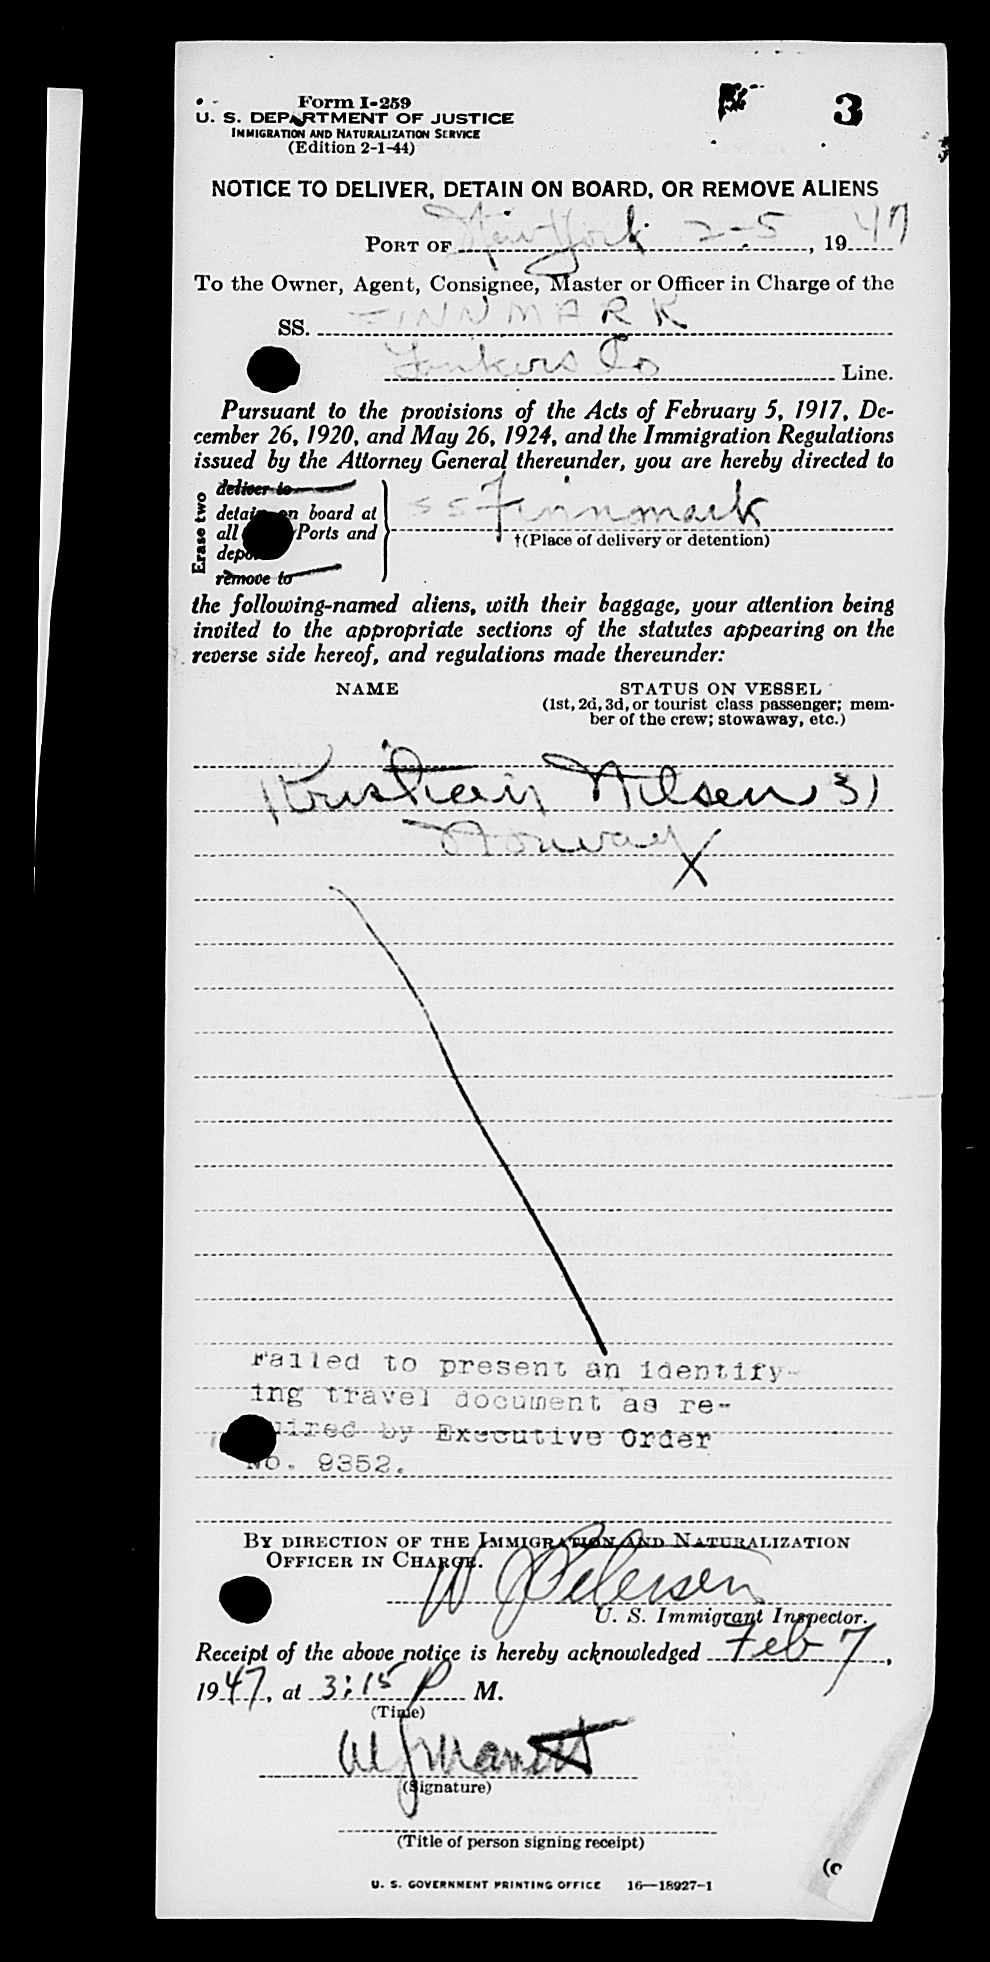 3
Form I-259
U. S. DEPARTMENT OF JUSTICE
IMMIGRATION AND NATURALIZATION SERVICE
(Edition 2-1-44)
NOTICE TO DELIVER, DETAIN ON BOARD, OR REMOVE ALIENS
PORT OF New York 2-5, 1947
To the Owner, Agent, Consignee, Master or Officer in Charge of the
SS. FINNMARK
Yonkers Co Line.
Pursuant to the provisions of the Acts of February 5, 1917, De-
cember 26, 1920, and May 26, 1924, and the Immigration Regulations
issued by the Attorney General thereunder, you are hereby directed to
Erase two
deliver to
detain on board at
all Ports and
remove to
SS Finnmark
†(Place of delivery or detention)
the following-named aliens, with their baggage, your attention being
invited to the appropriate sections of the statutes appearing on the
reverse side hereof, and regulations made thereunder:
NAME STATUS ON VESSEL
(1st, 2d, 3d, or tourist class passenger; mem-
ber of the crew; stowaway, etc.)
Kristian Nilsen 31
Norway X
Failed to present an identify-
ing travel document as re-
quired by Executive Order
No. 9352.
BY DIRECTION OF THE IMMIGRATION AND NATURALIZATION
OFFICER IN CHARGE.
W J Petersen
U. S. Immigrant Inspector.
Receipt of the above notice is hereby acknowledged Feb 7,
1947, at 3:15 P M.
(Time)
(Signature)
(Title of person signing receipt)
U. S. GOVERNMENT PRINTING OFFICE 16—18927-1